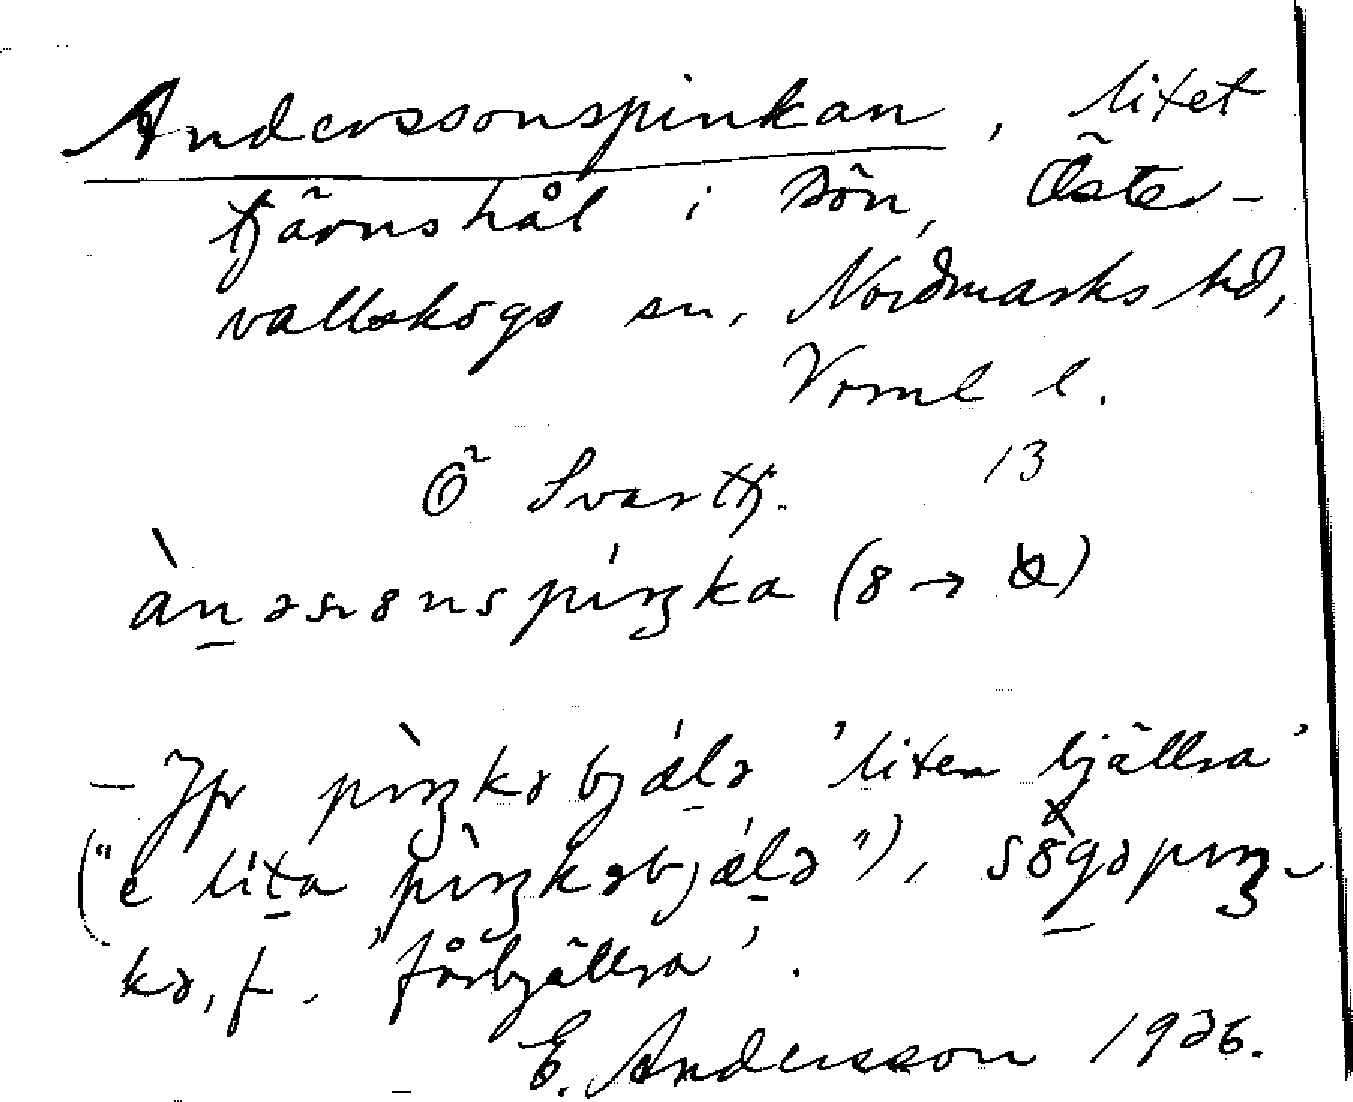 Anderssonspinkan, litet
tjärnshål i Bön, Öster-
vallskogs sn, Nordmarks hd,
Vrml l.
Ö Svarttj. 13
àn̲əsɴ8nspíŋka (8 →
– Jfr pìŋkəbjæ̀l̲ə 'liten bjällra'
("e lít̲a pìŋkəbjǽl̲ə"), s8̀g̲əpıŋ-
kə, f. 'fårbjällra'.
E. Andersson 1926.